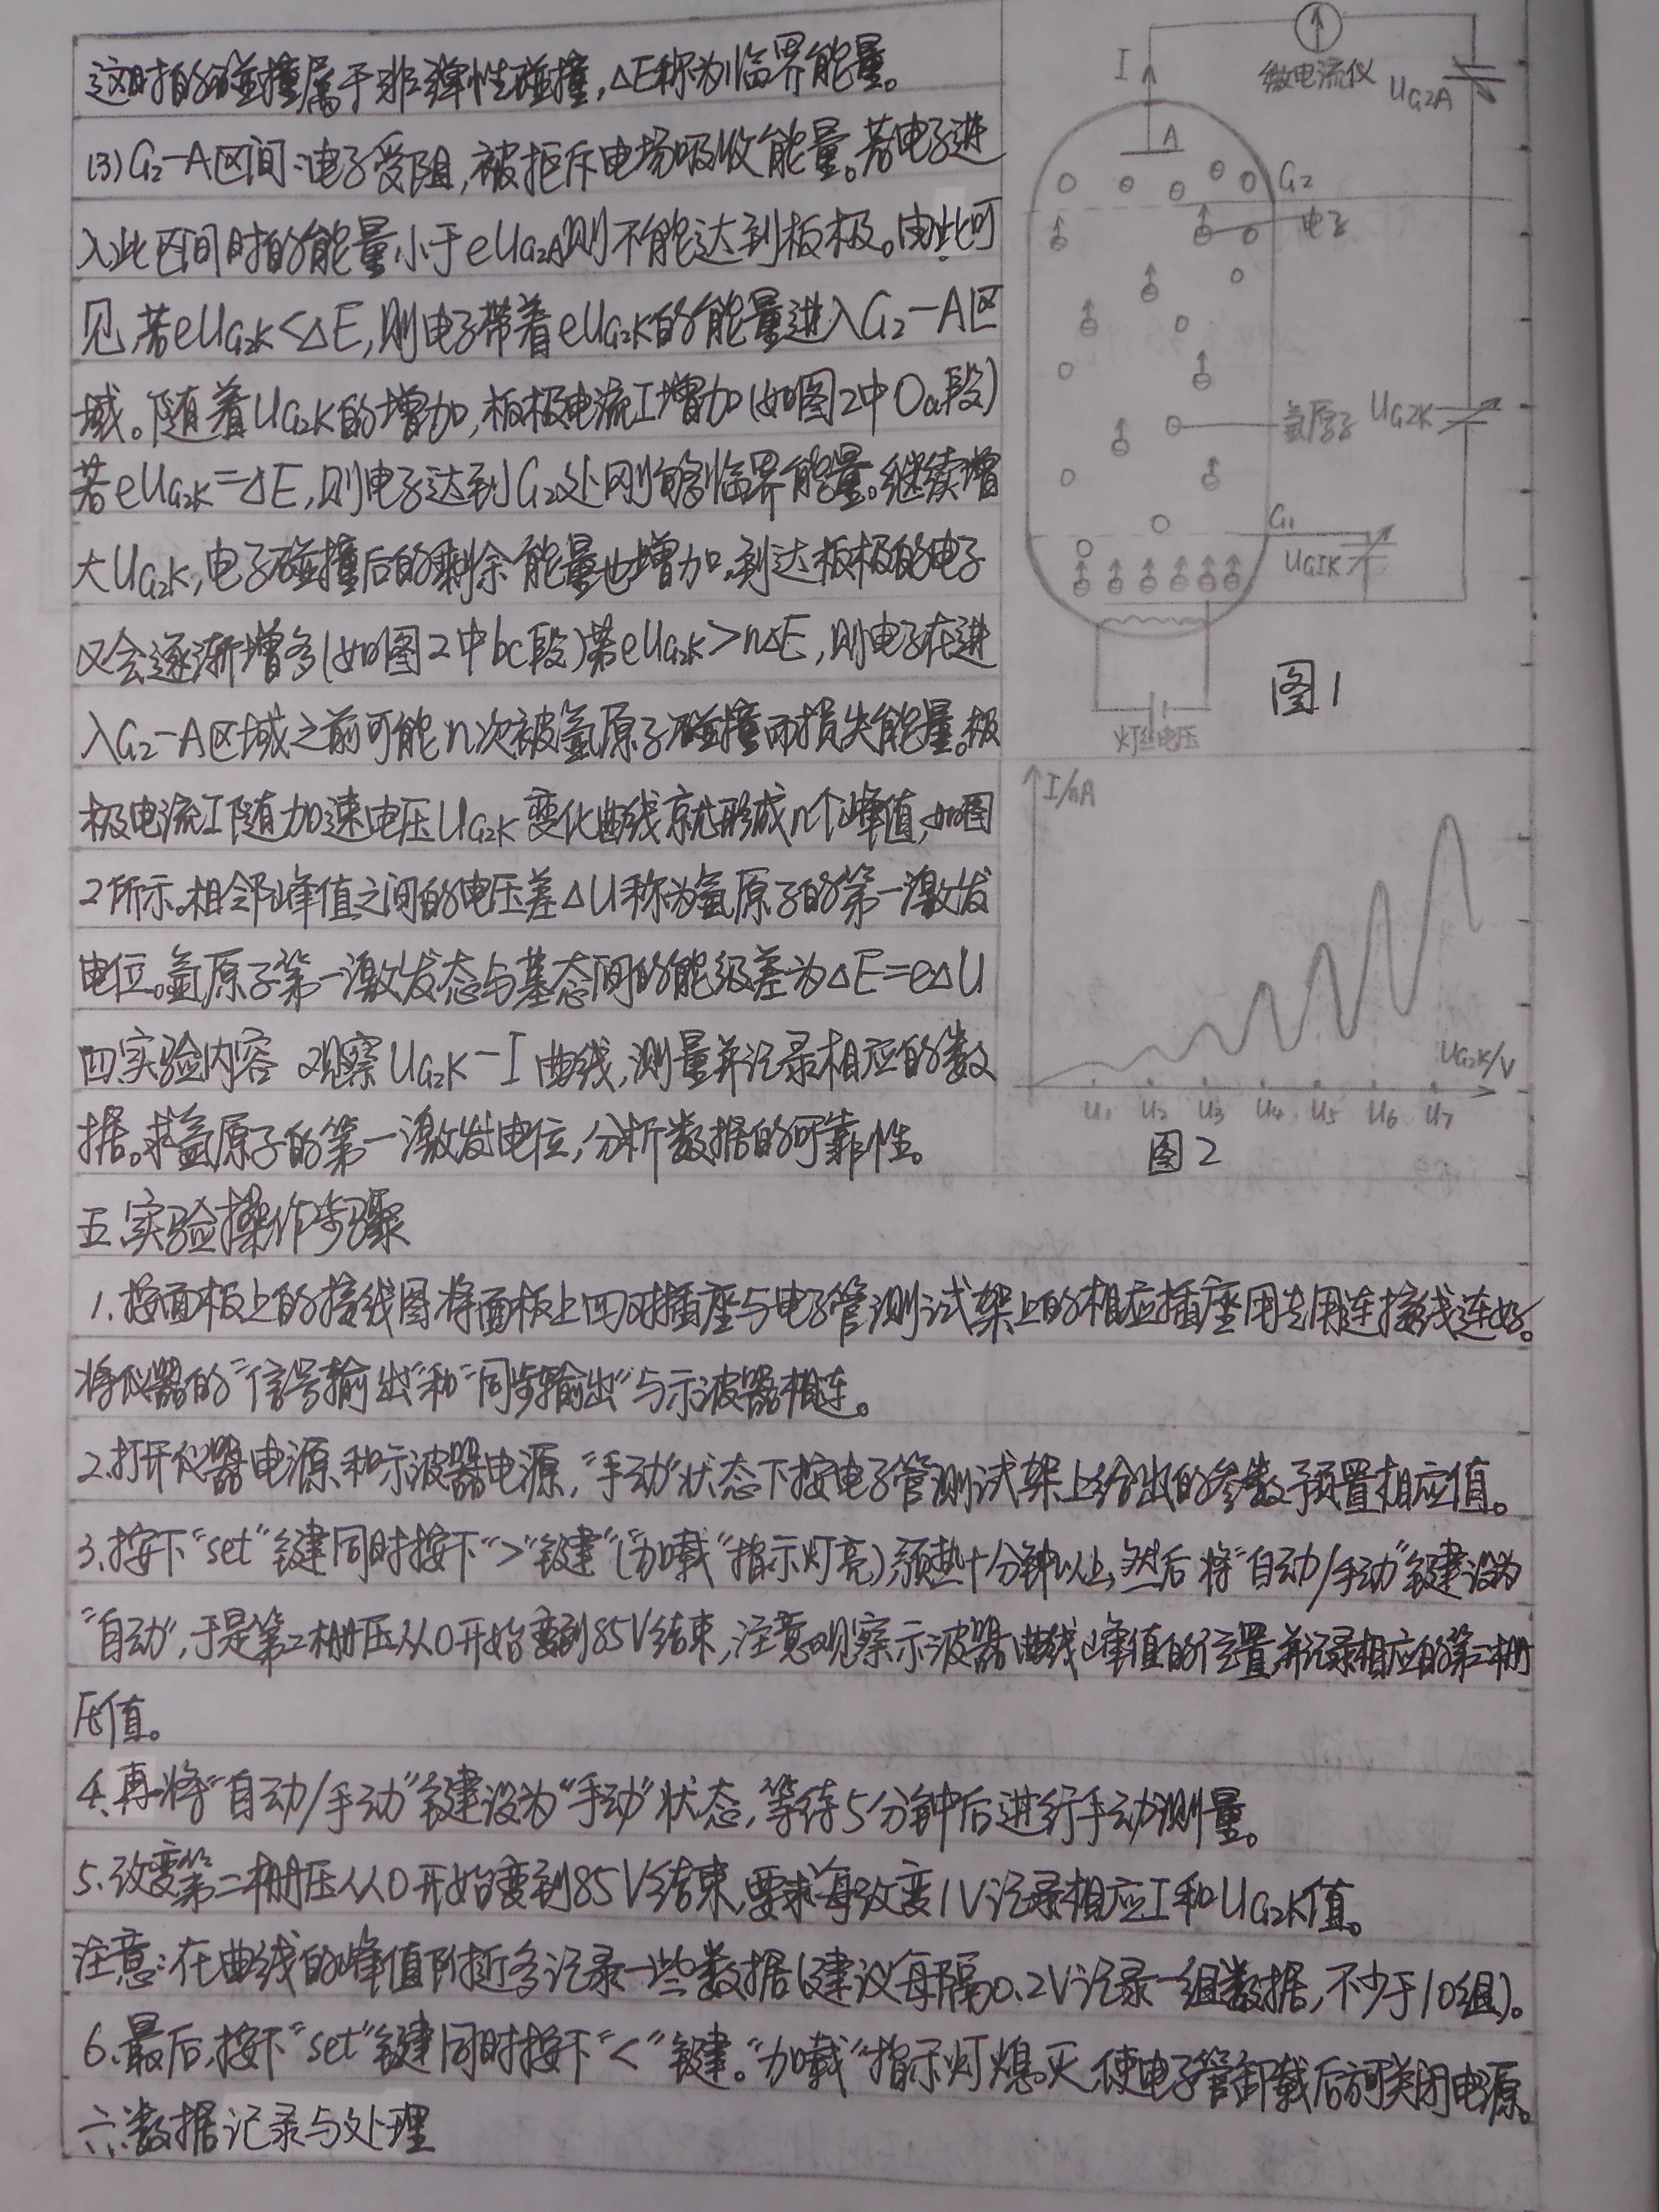 这时的碰撞属于非弹性碰撞,△E称为临界能量。
(3)G₂-A区间:电子受阻,被拒斥电场吸收能量。若电子进
入此区间时的能量小于eUG₂A则不能达到板极。由此可
见,若eUG₂K<△E,则电子带着eUG₂K的能量进入G₂-A区
域。随着UG₂K的增加,板极电流I增加(如图2中Oa段)
若eUG₂K=△E,则电子达到G₂处刚够临界能量。继续增
大UG₂K,电子碰撞后的剩余能量也增加,到达板极的电子
又会逐渐增多(如图2中bc段)若eUG₂K>n△E,则电子在进
入G₂-A区域之前可能n次被氩原子碰撞而损失能量。板
极电流I随加速电压UG₂K变化曲线就形成n个峰值,如图
2所示。相邻峰值之间的电压差△U称为氩原子的第一激发
电位。氩原子第一激发态与基态间的能级差为△E=e△U
四.实验内容 观察UG₂K-I曲线,测量并记录相应的数
据。求氩原子的第一激发电位,分析数据的可靠性。
I
微电流仪
UG2A
A
G₂
电子
氩原子
UG2K
G₁
UG1K
灯丝电压
图1
I/nA
UG₂K/V
U₁ U₂ U₃ U₄ U₅ U₆ U₇
图2
五.实验操作步骤
1.按面板上的接线图将面板上四对插座与电子管测试架上的相应插座用专用连接线连好。
将仪器的“信号输出”和“同步输出”与示波器相连。
2.打开仪器电源和示波器电源,“手动”状态下按电子管测试架上给出的参数予预置相应值。
3.按下“set”键同时按下“>”键“(“加载”指示灯亮),预热十分钟以上,然后将“自动/手动”键设为
“自动”,于是第二栅压从0开始变到85V结束,注意观察示波器曲线峰值的位置并记录相应的第二栅
压值。
4.再将“自动/手动”键设为“手动”状态,等待5分钟后进行手动测量。
5.改变第二栅压从0开始变到85V结束,要求每改变1V记录相应I和UG₂K值。
注意:在曲线的峰值附近多记录一些数据(建议每隔0.2V记录一组数据,不少于10组)。
6.最后,按下“set”键同时按下“<”键。“加载”指示灯熄灭,使电子管卸载后方可关闭电源。
六.数据记录与处理